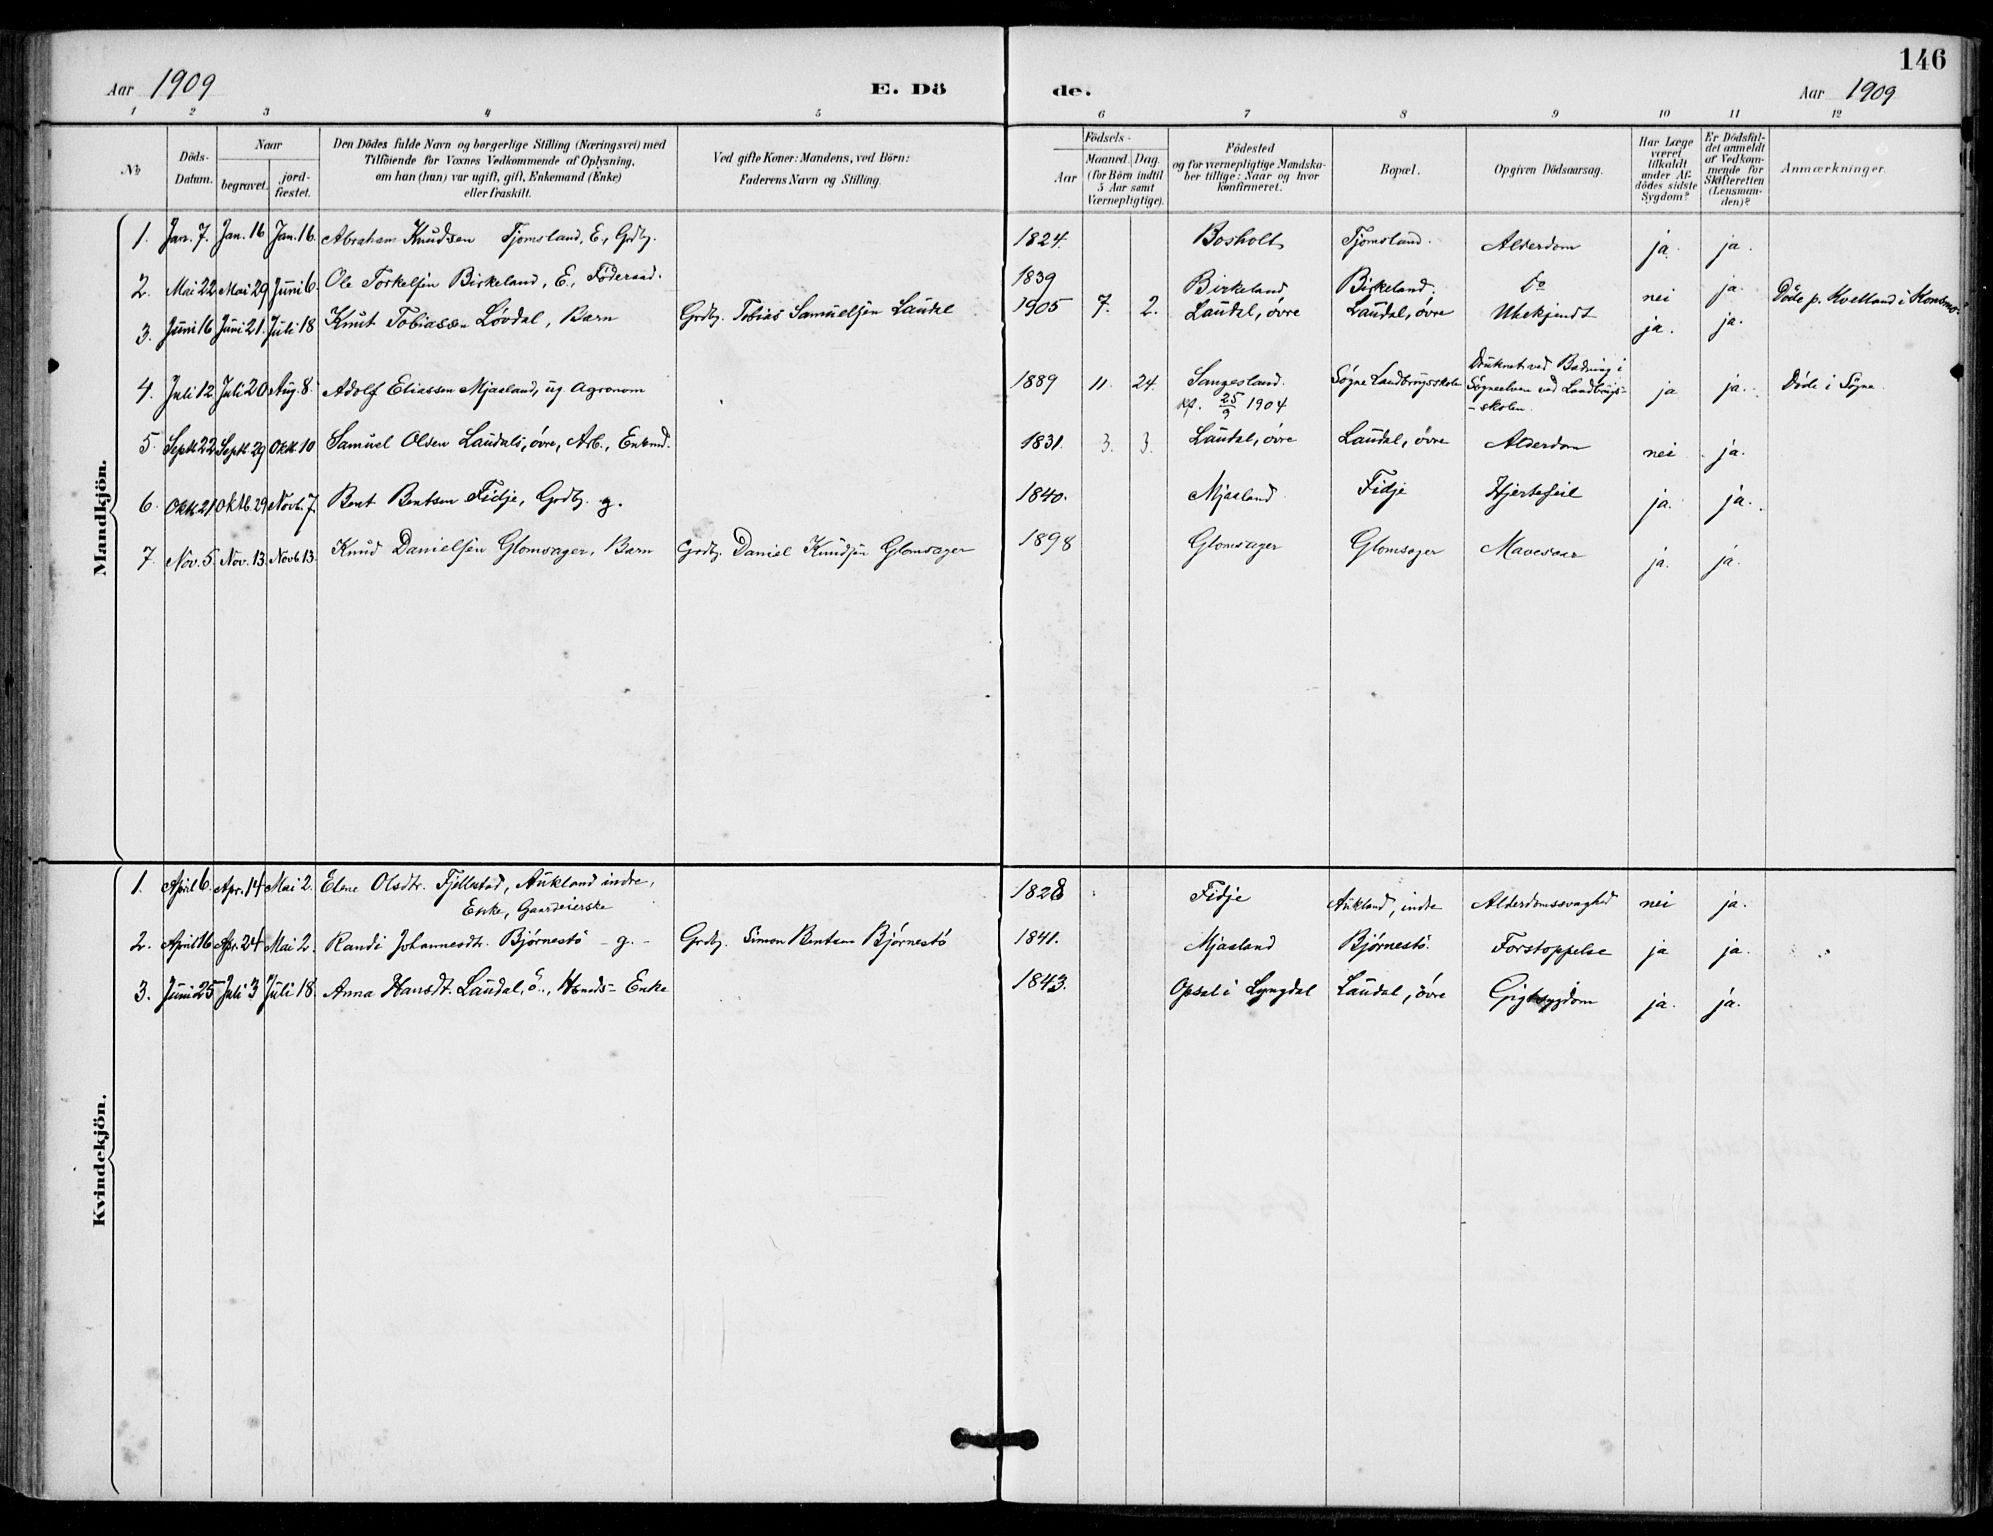 146
Aar 1909 E. Dö de. Aar 1909
1 2 3 4 5 6 7 8 9 10 11 12
No
Döds-Datum.
Naar
begravet.
jord-fæstet.
Den Dödes fulde Navn og borgerlige Stilling (Næringsvei) med
Tilföiende for Voxnes Vedkommende af Oplysning,
om han (hun) var ugift, gift, Enkemand (Enke)
eller fraskilt.
Ved gifte Koner: Mandens, ved Börn:
Faderens Navn og Stilling.
Födsels-
Aar
Maaned. Dag.
(for Börn indtil
5 Aar samt
Værnepligtige).
Födested
og for værnepligtige Mandska-
ber tillige: Naar og hvor
konfirmeret.
Bopæl.
Opgiven Dödsaarsag.
Har Læge
været
tilkaldt
under Af-
dödes sidste
Sygdom?
Er Dödsfal-
det anmeldt
af Vedkom-
mende for
Skifteretten
(Lensman-
den)?
Anmærkninger.
Mandkjön.
1. Jan. 7. Jan. 16 Jan. 16. Abraham Knudsen Tjomsland, E., Grdbg. 1824. Bosholt Tjomsland. Alderdom ja. ja.
2. Mai 22 Mai 29 Juni 6. Ole Torkelsen Birkeland, E., Föderaad. 1839 Birkeland Birkeland. Do nei ja.
3. Juni 16 Juni 21. Juli 18 Knut Tobiassen Lövdal, Barn Grdbg. Tobias Samuelsen Laudal 1905 7. 2. Laudal, övre Laudal, övre Ubekjendt ja. ja. Döde p. Kvelland i Konsmo.
4. Juli 12 Juli 20 Aug. 8. Adolf Eliassen Mjaaland, ug Agronom 1889 11. 24. Sangesland. kf. 25/9 1904 Søgne Landbrugsskole Druknet ved Badning i
Søgneelven ved Landbrugs-
-skolen. ja ja. Döde i Søgne.
5 Septb. 22 Septb. 29 Oktb. 10 Samuel Olsen Laudal, övre, Arb., Enkmd. 1831. 3. 3. Laudal, övre Laudal, övre Alderdom nei ja.
6. Oktb. 21 Oktb. 29 Novb. 7. Bent Bentsen Fidje, Grdbg. g. 1840. Mjaaland Fidje Hjertefeil ja. ja.
7. Nov. 5. Nov. 13. Novb. 13. Knud Danielsen Glomsager, Barn Grdbg. Daniel Knudsen Glomsager 1898 Glomsager Glomsager Mavesaar ja. ja.
Kvindekjön.
1. April 6. Apr. 14 Mai 2. Elene Olsdtr. Fjellestad, Aukland indre,
Enke, Gaardeierske 1828 Fidje Aukland, indre Alderdomssvaghed nei ja.
2. April 16 Apr. 24 Mai 2. Randi Johannesdtr. Bjørnestö - g. - Grdbg. Simon Bentsen Bjørnestö 1841. Mjaaland Bjørnestö. Forstoppelse ja ja.
3. Juni 25 Juli 3 Juli 18. Anna Hansdt. Laudal, ö., Enke 1843. Opsal i Lyngdal Laudal, övre Gigtsygdom ja. ja.